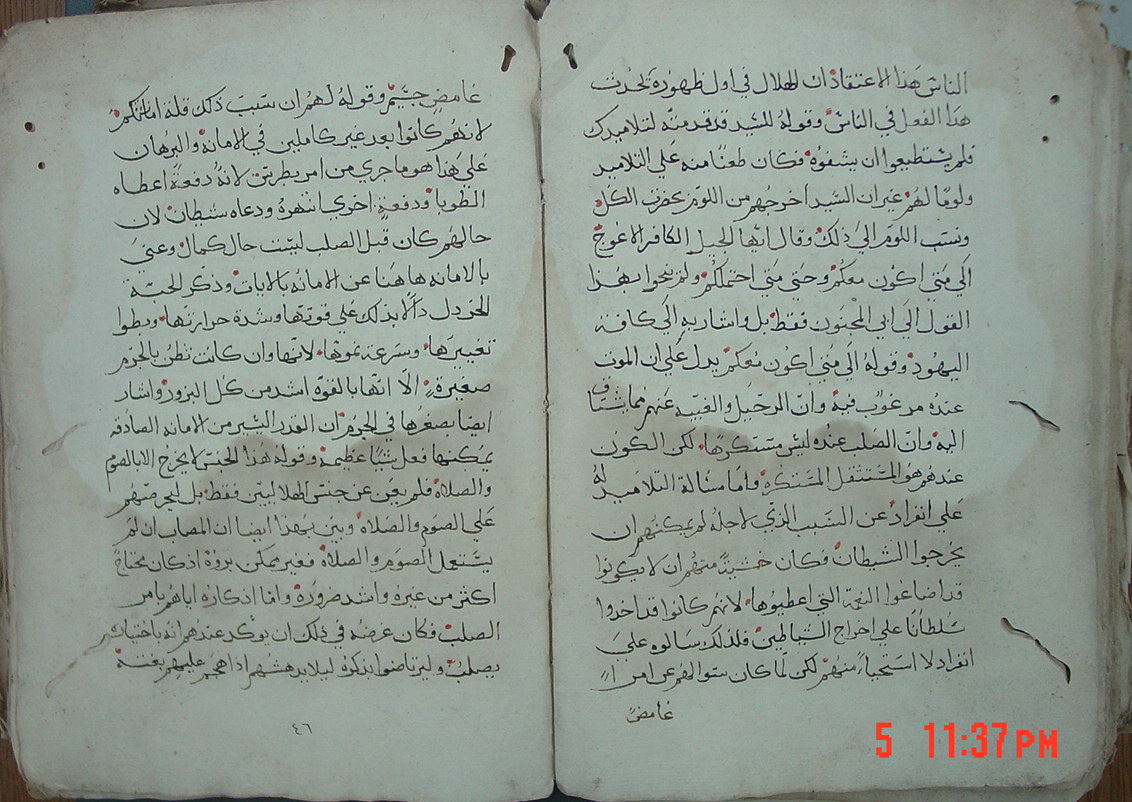 الناس هذا الاعتقاد ان الهلال في اول ظهوره تحدث
هذا الفعل في الناس وقوله للسيد قد قدمته لتلاميدك
فلم يستطيعوا ان يشفوه فكان طعنًا منه على التلاميد
ولومًا لهم غير ان السيد اخرجهم من اللوم بحضرت الكل
ونسب اللوم الى ذلك وقال ايها الجيل الكافر الاعوج
الى متى اكون معكم وحتى متى احتملكم ولم ينحوا بهذا
القول الى ابي المجنون فقط بل واشار به الى كافة
اليهود وقوله الى متى اكون معكم يدل على ان الموت
عنده مرغوب فيه وان الرحيل والغيبه عنهم مما يشتاق
اليه وان الصلب عنده ليس مستكرهًا لكن الكون
عندهم هو المستثقل المستكره واما مسالة التلاميد له
على انفراد عن السبب الذي لاجله لم يمكنهم ان
يخرجوا الشيطان فكان خشيتًا منهم ان لا يكونوا
قد اضاعوا النعمة التي اعطيوها لانهم كانوا قد اخدوا
سلطانًا على اخراج الشياطين فلذلك سالوه على
انفراد لا استحيا منهم لكن لما كان سوالهم عن امرا
غامض
غامض جسيم وقوله لهم ان سبب ذلك قلة امانتكم
لانهم كانوا بعد غير كاملين في الامانه والبرهان
على هذا هو ما جري من امر بطرس لانه دفعةً اعطاه
الطوبا ودفعةٍ اخري انتهره ودعاه شيطان لان
حالهم كان قبل الصلب ليست حال كمال وعنى
بالامانه هاهنا عن الامانه بالايات وذكر الحبة
الخردل دالا بذلك على قوتها وشدة حرارتها وبطوا
تغييرها وسرعة نموها لانها وان كانت تظن بالجرم
صغيرة الا انها بالقوه اشد من كل البزور واشار
ايضا بصغرها في الجرم ان القدر اليسير من الامانه الصادقه
يمكنها فعل شيا عظيمه وقوله هذا الجنس لا يخرج الا بالصوم
والصلاه فلم يعن عن جنس الهلاليين فقط بل ليحرضهم
على الصوم والصلاه وبين بهذا ايضا ان المصاب ان لم
يستعمل الصوم والصلاه فغير ممكن بروه اد كان محتاج
اكثر من غيره واشد ضروره واما ادكاره اياهم بامر
الصلب فكان غرضه في ذلك ان يوكد عندهم انه باختياره
يصلب وليرتاضوا بذكره ليلا يدهشهم ادا هجم عليهم بغتةً
٤٦
5 11:37 PM